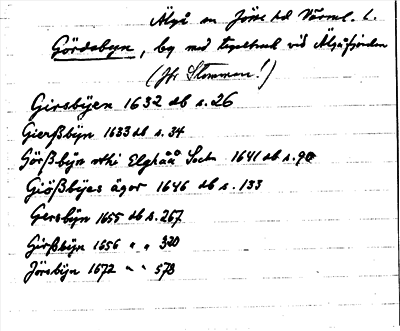 Älgå sn Jösse hd Värml. l.
Gördsbyn, by med tegelbruk vid Älgåfjorden
(Jfr Stommen!)
Girsbÿen 1632 db s. 26
Gierßbÿn 1633 db s. 34
Görßbÿn uthi Elghåå Sochn 1641 db s. 90
Giößbÿes ägor 1646 db s. 133
Gersbÿn 1655 db s. 267
Girßbÿn 1656 " " 320
Jörsbÿn 1672 " " 578